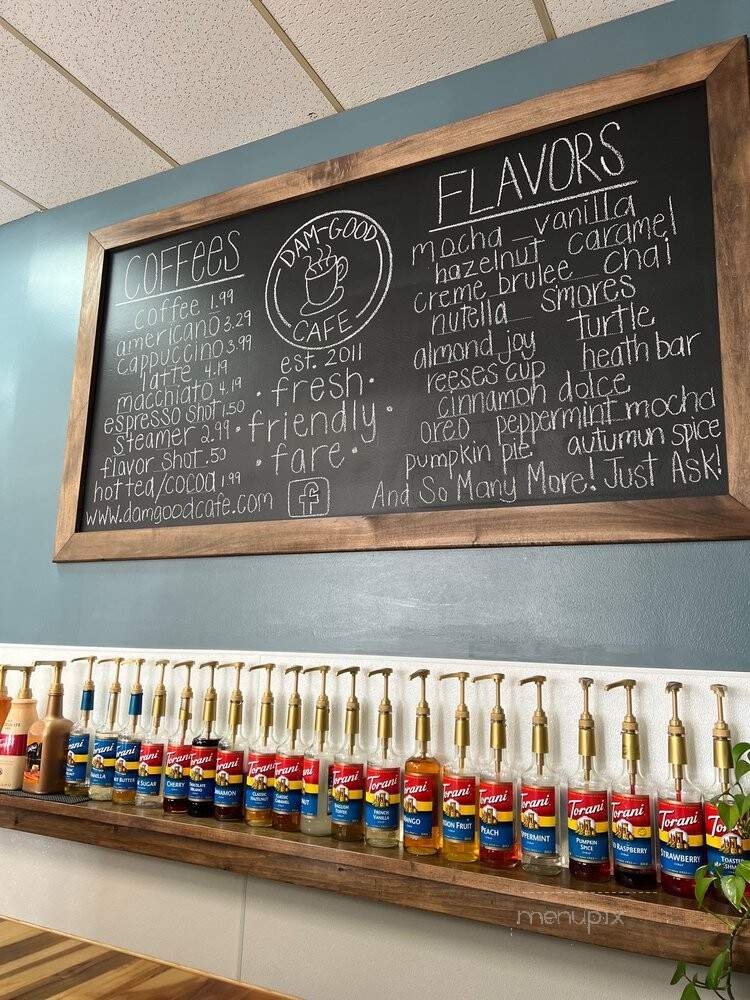 COFFEES
coffee 1.99
americano 3.29
cappuccino 3.99
latte 4.19
macchiato 4.19
espresso shot 1.50
steamer 2.99
flavor shot .50
hot tea/cocoa 1.99
www.damgoodcafe.com
DAM-GOOD
CAFE
est. 2011
· fresh ·
· friendly ·
· fare ·
f
FLAVORS
mocha vanilla
hazelnut caramel
creme brulee chai
nutella smores
almond joy turtle
reeses cup heath bar
cinnamon dolce
oreo peppermint mocha
pumpkin pie autumun spice
And So Many More! Just Ask!
Torani
VANILLA
Torani
BUTTER
Torani
SUGAR
Torani
CHERRY
Torani
CHOCOLATE
MILANO
Torani
CINNAMON
Torani
CLASSIC
HAZELNUT
Torani
CLASSIC
CARAMEL
Torani
Torani
ENGLISH
TOFFEE
Torani
FRENCH
VANILLA
Torani
MANGO
Torani
FRUIT
Torani
PEACH
Torani
PEPPERMINT
Torani
PUMPKIN
SPICE
Torani
RASPBERRY
Torani
STRAWBERRY
Torani
TOASTED
menupix